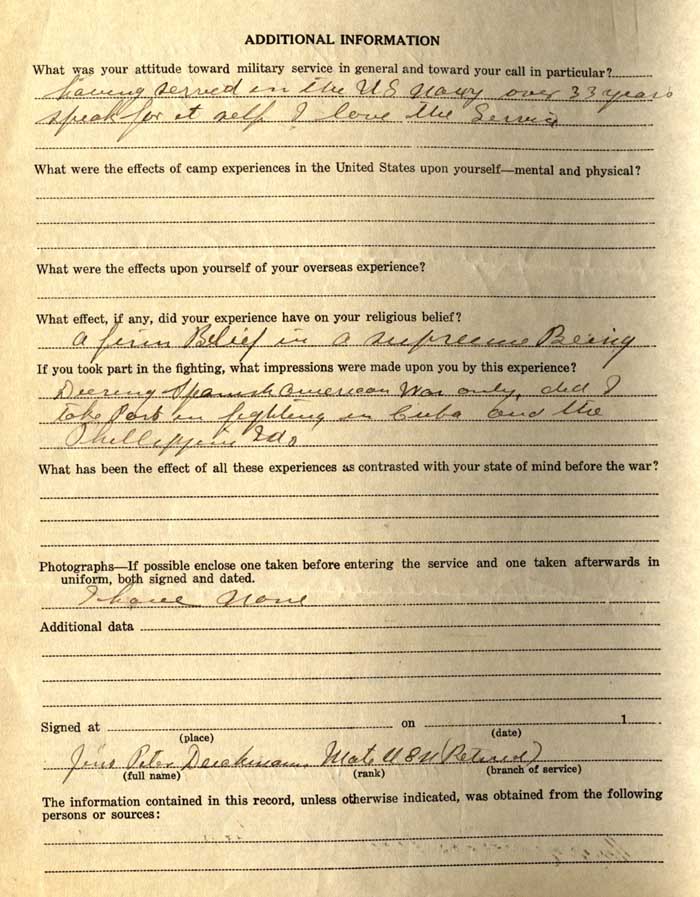 ADDITIONAL INFORMATION
What was your attitude toward military service in general and toward your call in particular?
having served in the US Navy over 33 years
speak for it self I love the Service
What were the effects of camp experiences in the United States upon yourself—mental and physical?
What were the effects upon yourself of your overseas experience?
What effect, if any, did your experience have on your religious belief?
A firm Belief in a supreme Being
If you took part in the fighting, what impressions were made upon you by this experience?
Deering Spanish American War only, did I
take Part in fighting in Cuba and the
Phillippin Ids
What has been the effect of all these experiences as contrasted with your state of mind before the war?
Photographs—If possible enclose one taken before entering the service and one taken afterwards in
uniform, both signed and dated.
I have None
Additional data
Signed at on 1
(place) (date)
Peter Mate USN (Retired)
(full name) (rank) (branch of service)
The information contained in this record, unless otherwise indicated, was obtained from the following
persons or sources: